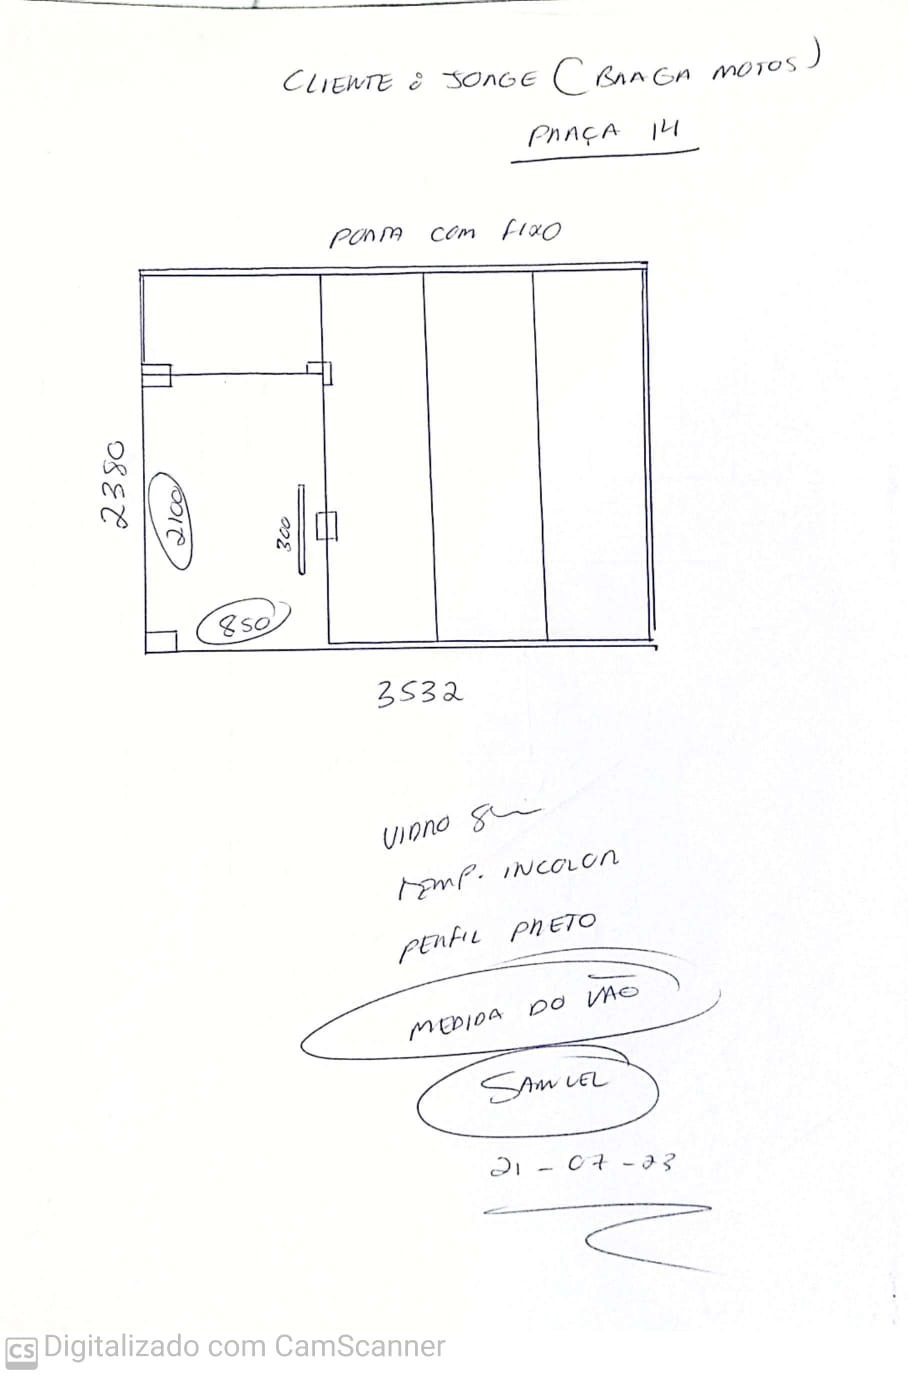 CLIENTE: JORGE (BRAGA MOTOS)
PRAÇA 14
PORTA COM FIXO
2380
2100
300
850
3532
VIDRO 8mm
TEMP. INCOLOR
PERFIL PRETO
MEDIDA DO VÃO
SAMUEL
21-07-23
CS Digitalizado com CamScanner